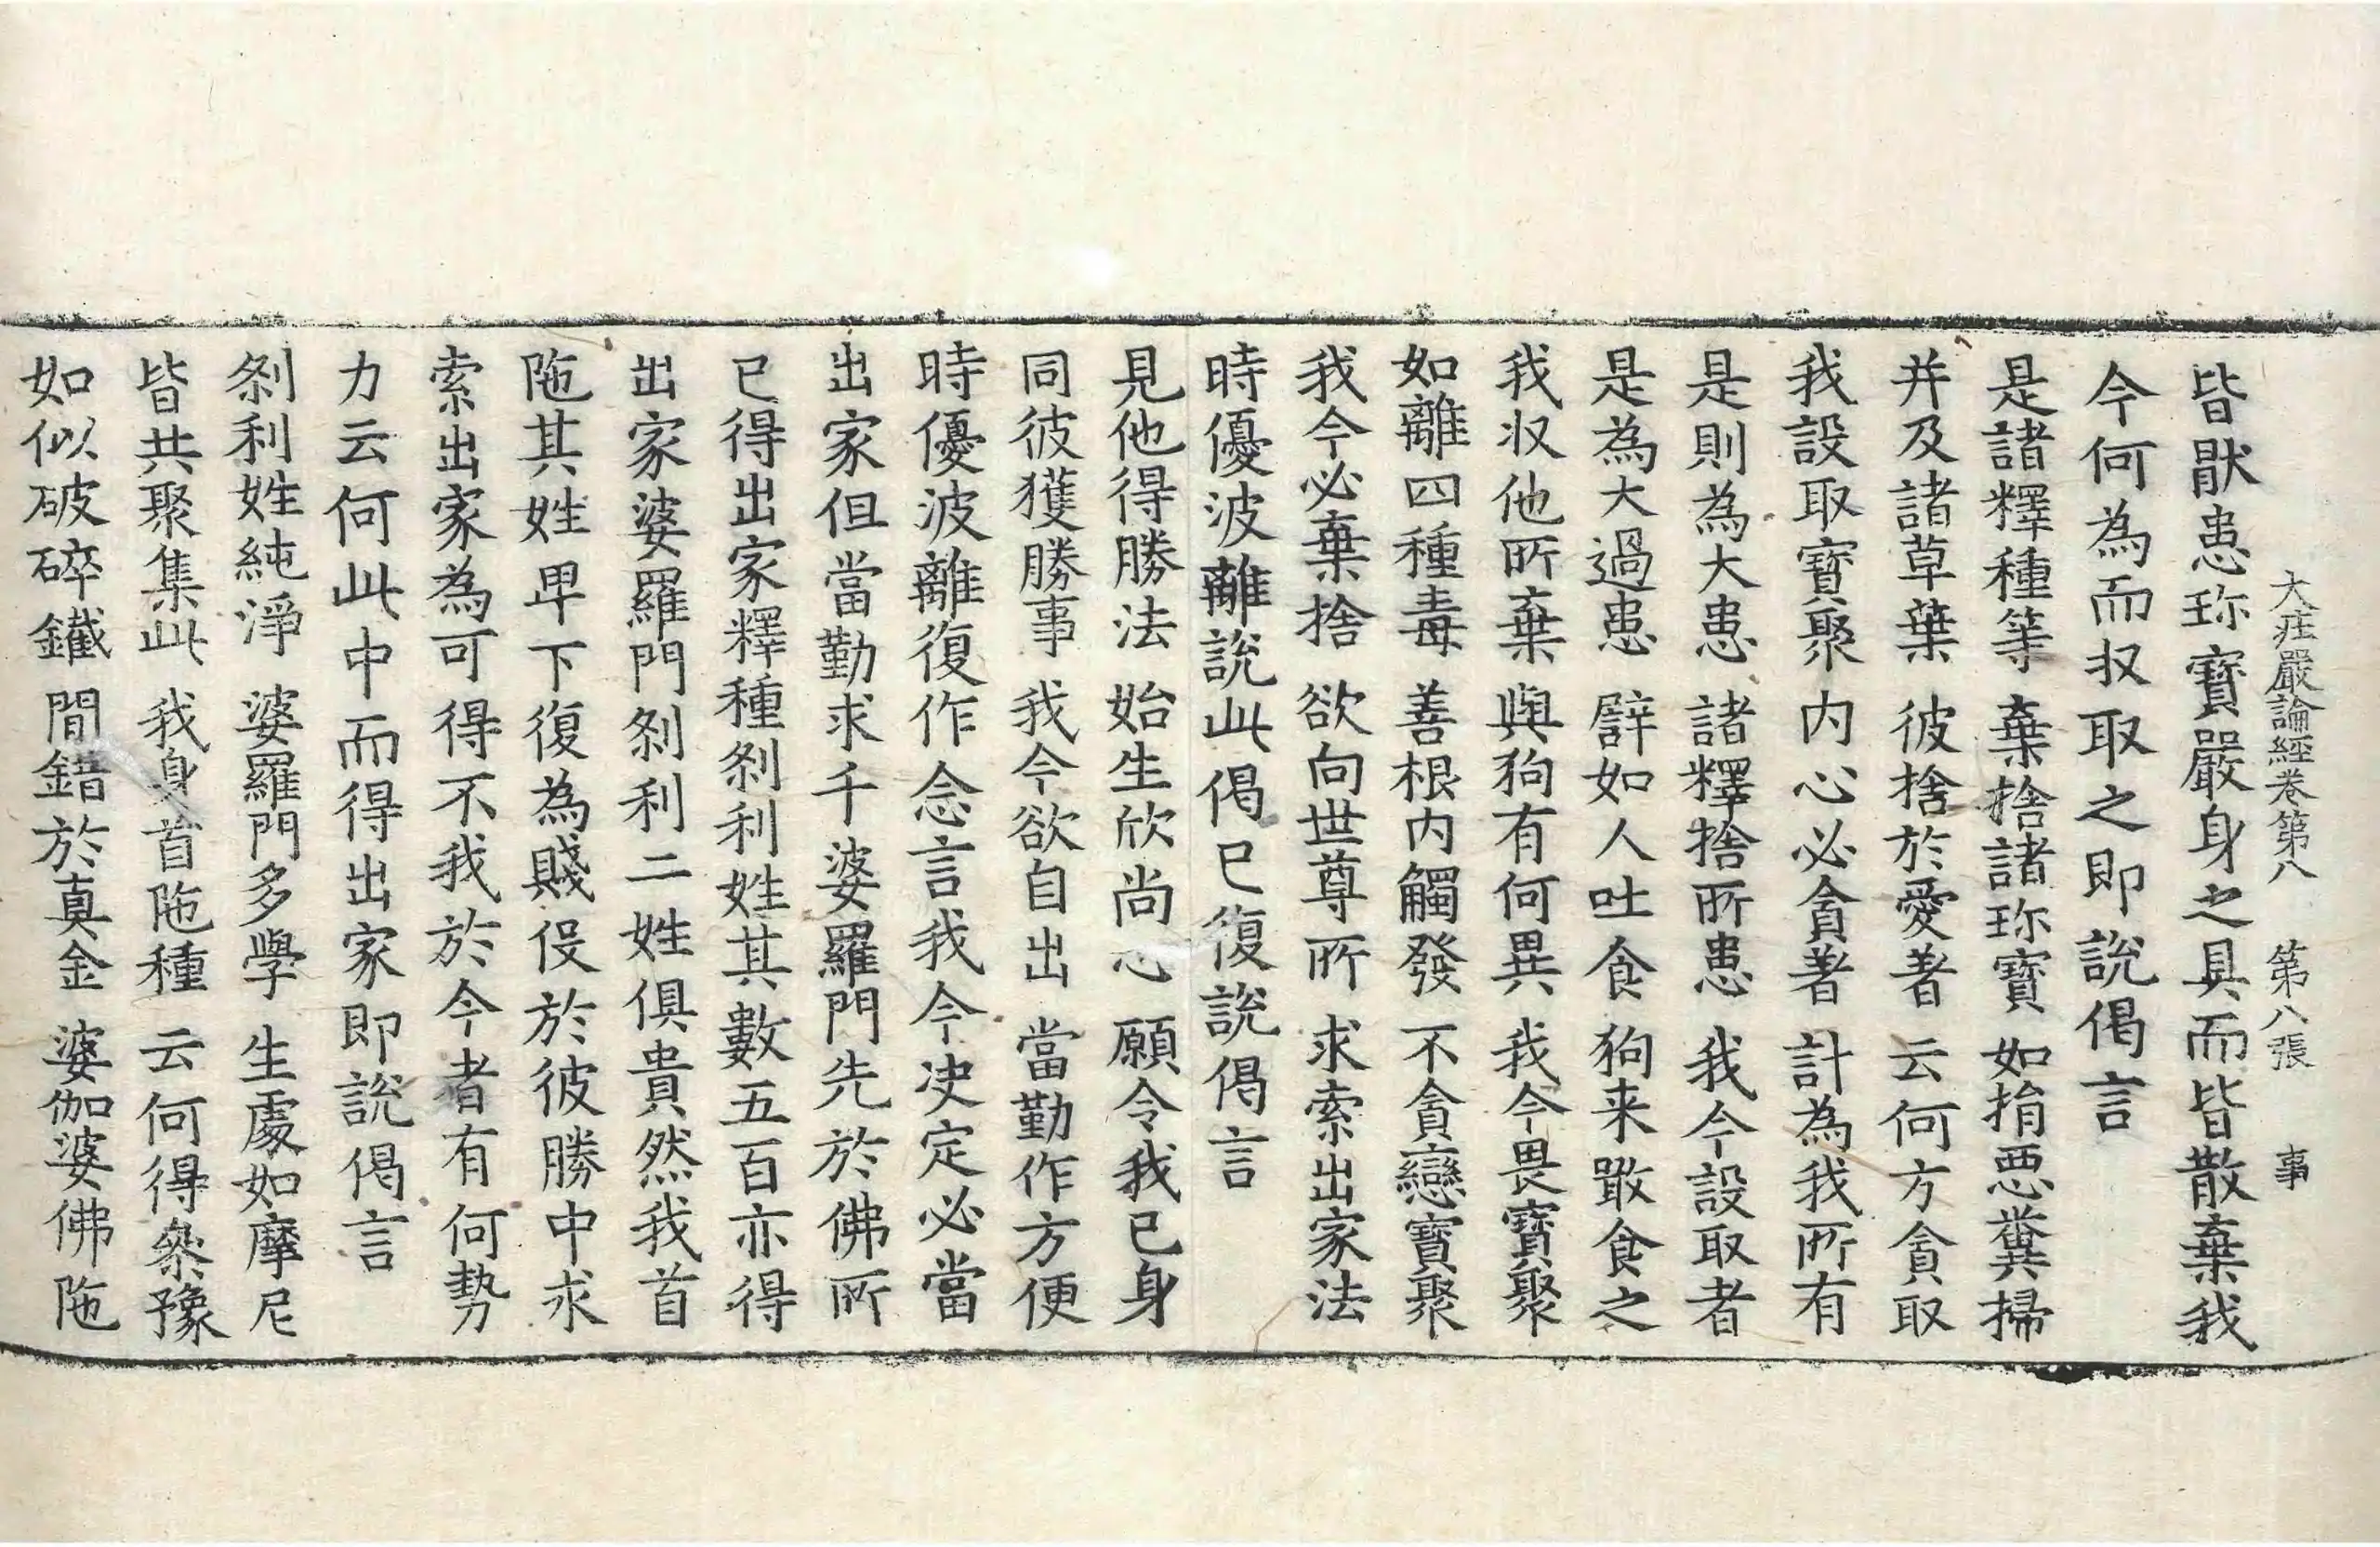 大莊嚴論經卷第八　第八張　事
皆猒患珎寶嚴身之具而皆散棄我
今何為而収取之即說偈言
是諸釋種等　棄捨諸珎寶　如捐惡糞掃
并及諸草葉　彼捨於愛著　云何方貪取
我設取寶聚　内心必貪著　計為我所有
是則為大患　諸釋捨所患　我今設取者
是為大過患　譬如人吐食　狗来噉食之
我収他所棄　與狗有何異　我今畏寶聚
如離四種毒　善根内觸發　不貪戀寶聚
我今必棄捨　欲向世尊所　求索出家法
時優波離說此偈已復說偈言
見他得勝法　始生欣尚心　願令我已身
同彼獲勝事　我今欲自出　當勤作方便
時優波離復作念言我今决定必當
出家但當勤求千婆羅門先於佛所
已得出家釋種剎利姓其數五百亦得
出家婆羅門剎利二姓俱貴然我首
陁其姓卑下復為賤役於彼勝中求
索出家為可得不我於今者有何勢
力云何此中而得出家即說偈言
剎利姓純淨　婆羅門多學　生處如摩尼
皆共聚集此　我身首陁種　云何得叅豫
如似破碎鐵　間錯於真金　婆伽婆佛陁